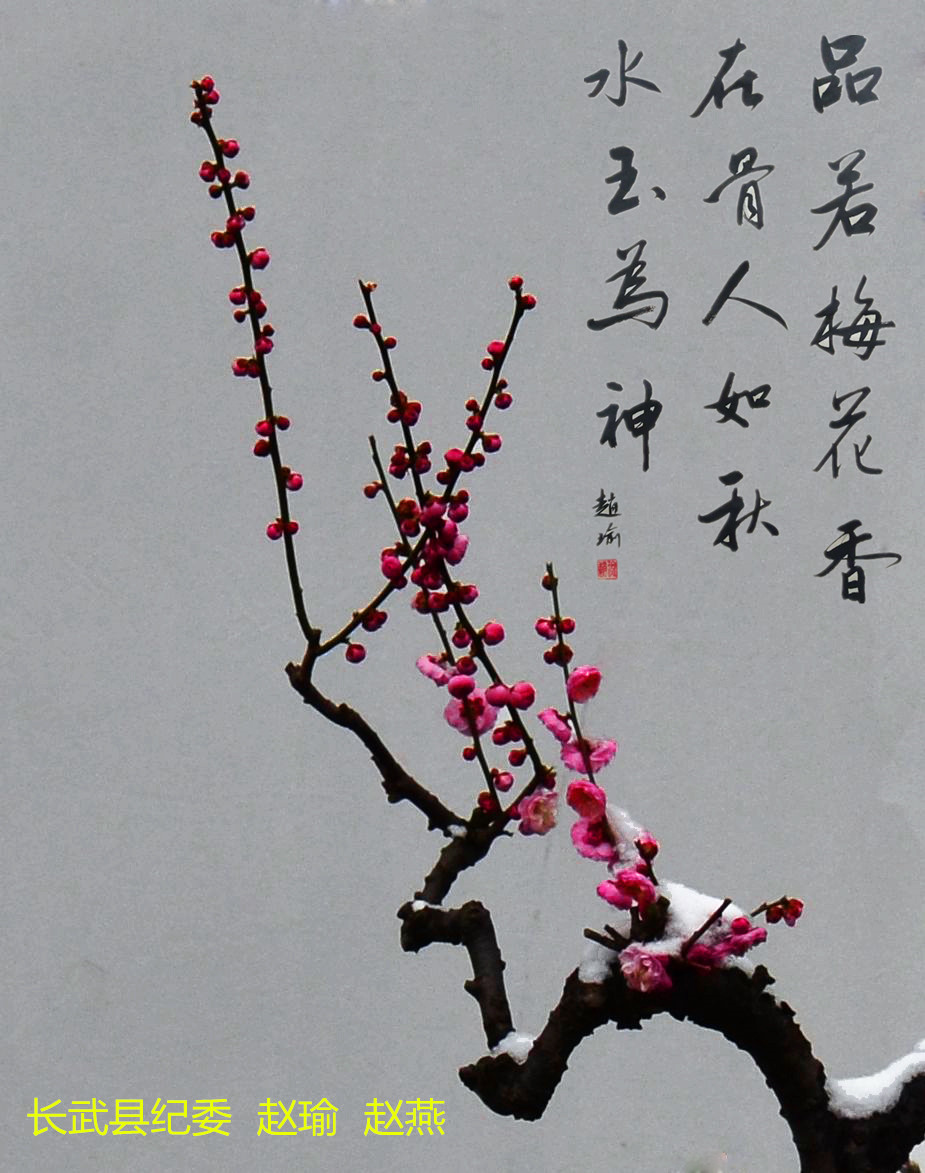 品若梅花香
在骨人如秋
水玉為神
趙瑜
长武县纪委 赵瑜 赵燕